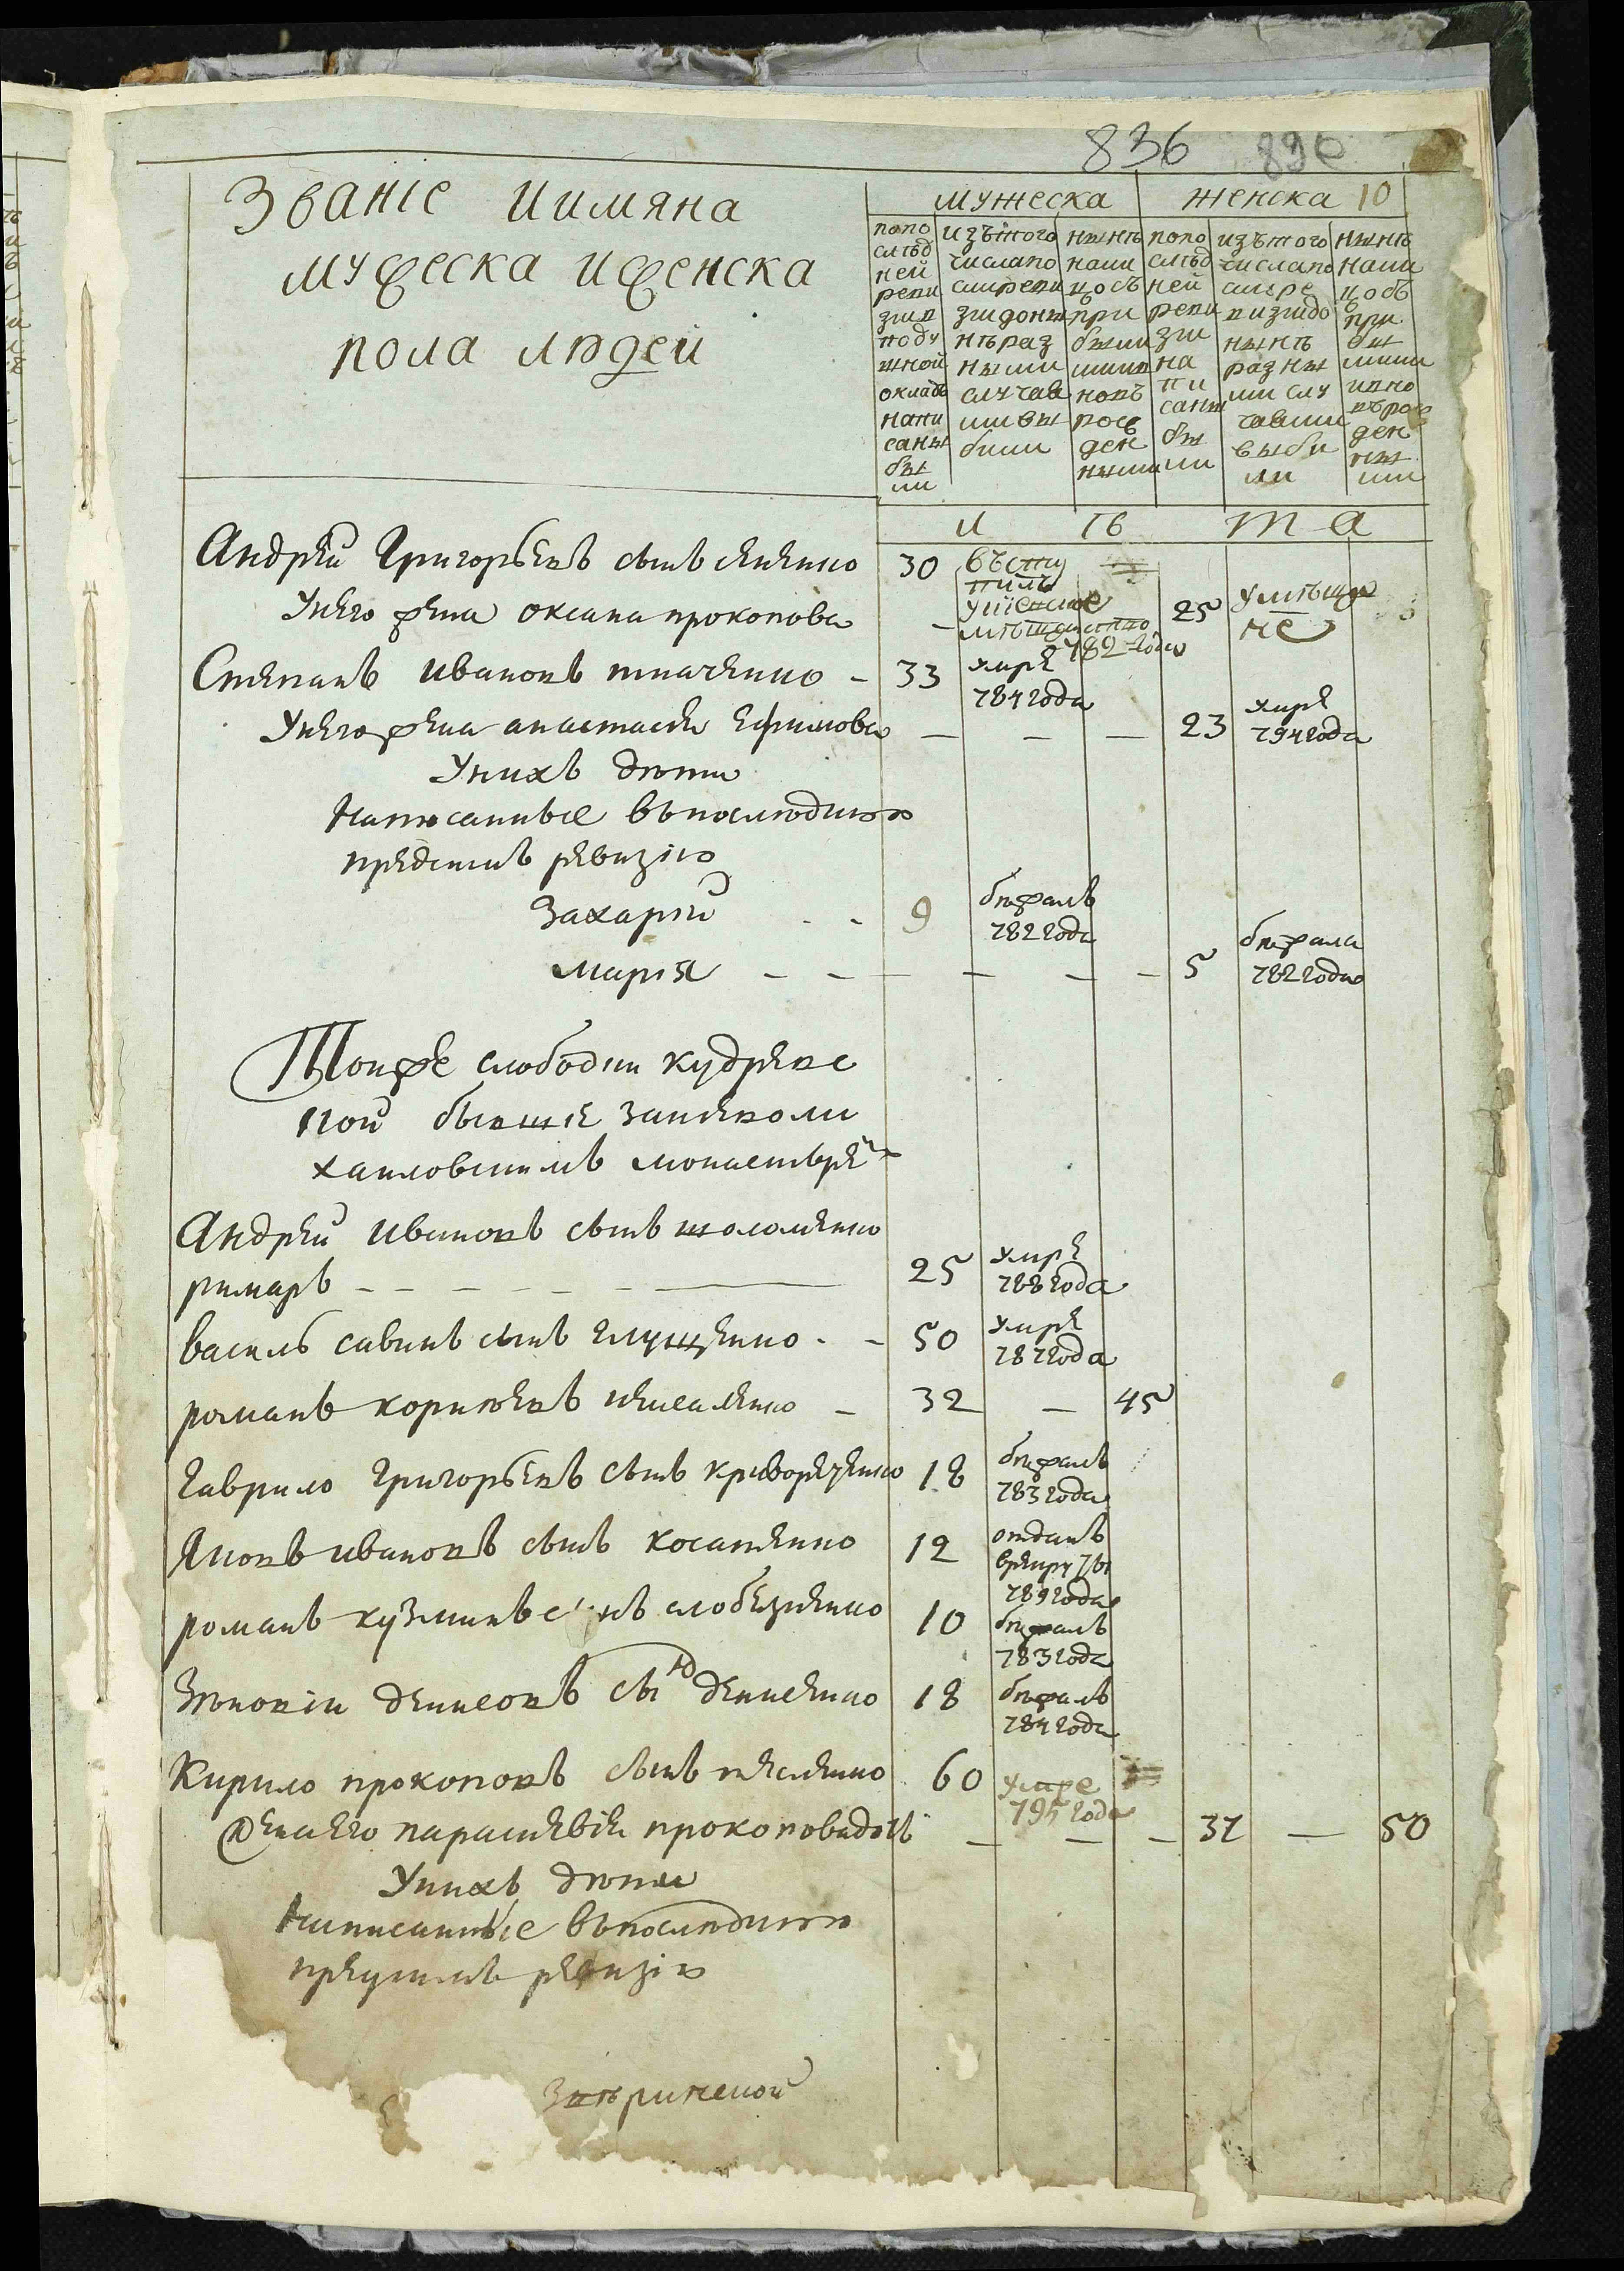 836 836
Званіе иимяна
мужеска иженска
пола людей
мужеска женска 10
попо
слѣд
ней
реви
зіи в
поду
шной
окладъ
напи
саны
бы
ли
изътого
числапо
слѣреви
зіидоны
нѣраз
ными
случая
мивы
были
нынѣ
нали
цосъ
при
были
мив
новъ
рож
ден
ными
попо
слѣд
ней
реви
зіи
на
пи
саны
бы
ли
изътого
числапо
слѣре
визіидо
нынѣ
разны
ми слу
чаями
выбы
ли
нынѣ
нали
цосъ
при
бы
лыми
ивно
върож
ден
ны
ми
лѣта
Андрей Григорьевъ сынъ 30 въсту
пилъ
Унего жена оксана прокопова 25
782 года
Степанъ Ивановъ ткаченко 33 умре
784 года
Унегожена анастасія Ефимова 23 умре
794 года
Унихъ дѣти
Написанные въпослѣднюю
предсимъ ревизію
Захарій 9 бѣжалъ
782 года
Марія 5 бѣжала
782 года
Тойже слободы кудряв
ской бывшіе закіевоми
хайловскимъ монастыремъ
Андрей Ивановъ сынъ шоломенко
римарь 25 умре
788 года
василь савинъ сынъ глущенко 50 умре
787 года
романъ корнѣевъ 32 45
Гаврило Григорьевъ сынъ криворученко 18 бѣжалъ
783 года
Яковъ ивановъ сынъ косатенко 12 отданъ
врекруты
789 года
романъ кузминъ сынъ слобезненко 10 бѣжалъ
783 года
Зѣновіи денисовъ сынъ денисенко 18 бѣжалъ
784 года
Кирило прокоповъ сынъ тесленко 60 умре
795 года
Женаего параскевія прокоповадочь 37 50
Унихъ дѣти
Написанные въпослѣднюю
предсимъ ревизію
Звѣринской